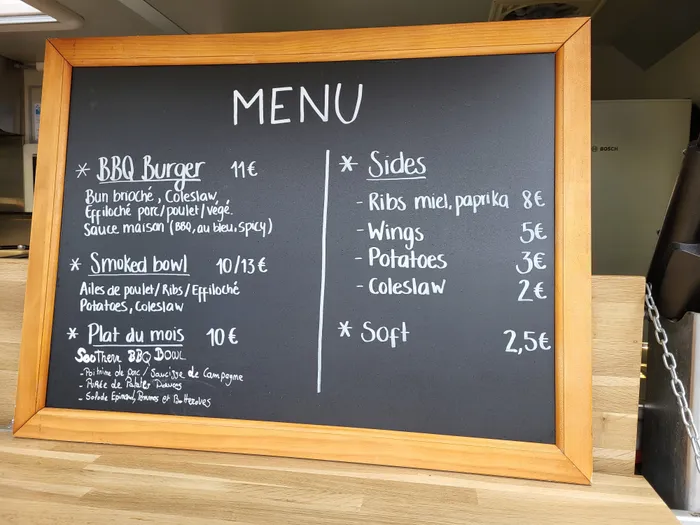 MENU
* BBQ Burger 11€
Bun brioché, Coleslaw,
Effiloché porc/poulet/végé.
Sauce maison (BBQ, au bleu, spicy)
* Smoked bowl 10/13€
Ailes de poulet/Ribs/Effiloché
Potatoes, Coleslaw
* Plat du mois 10€
Soothern BBQ BOWL
- Poitrine de porc / Saucisse de Campagne
- Purée de Patates Douces
- Salade Epinard, Pommes et
* Sides
- Ribs miel, paprika 8€
- Wings 5€
- Potatoes 3€
- Coleslaw 2€
* Soft 2,5€
BOSCH